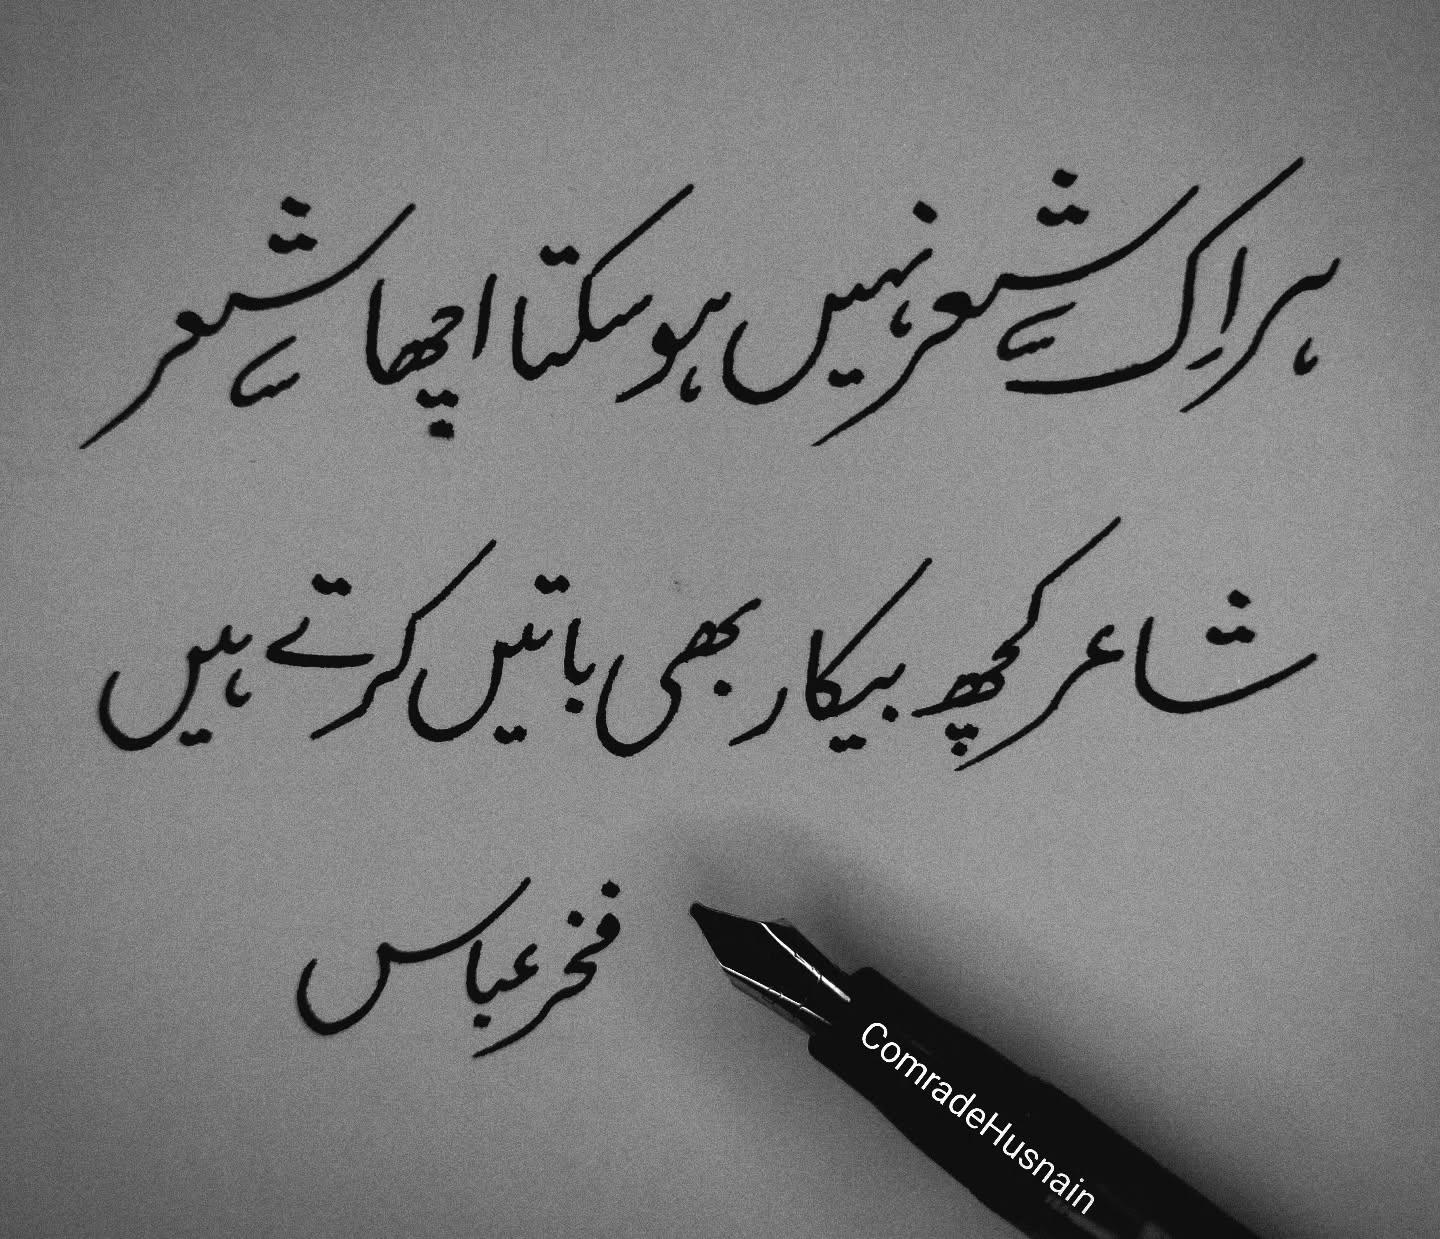 ہر اِک شعر نہیں ہو سکتا اچھا شعر
شاعر کچھ بیکار بھی باتیں کرتے ہیں
فخر عباس
ComradeHusnain